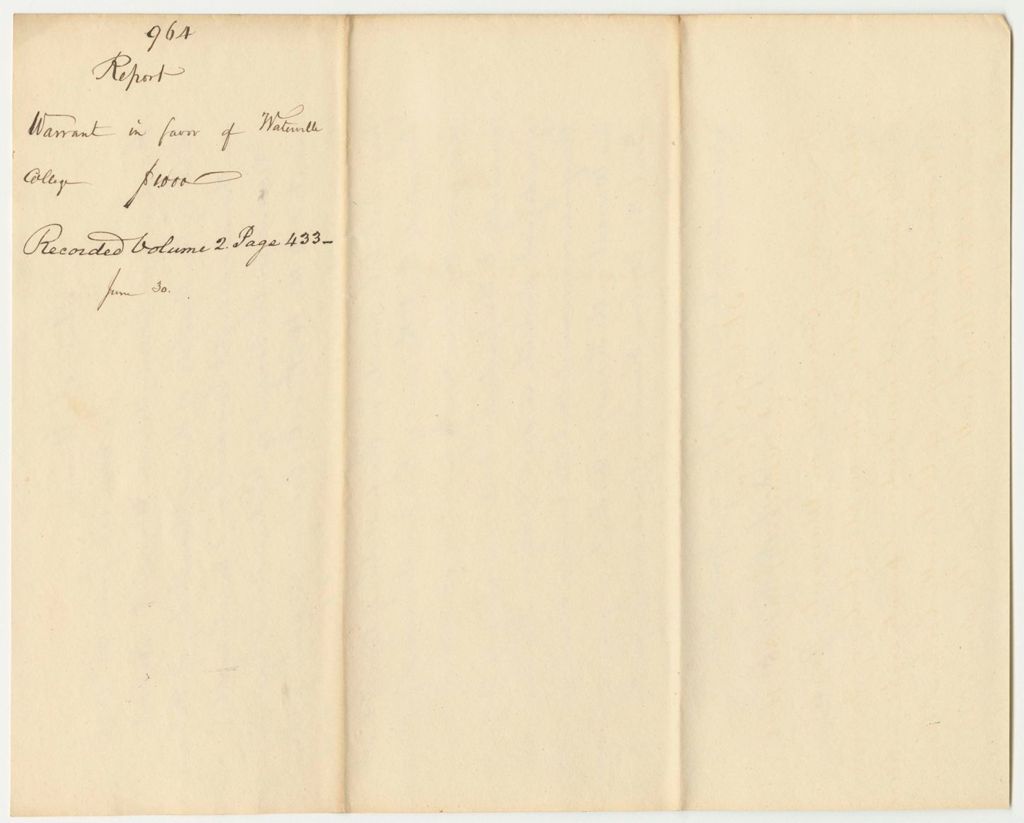 964
Report
Warrant in favor of Waterville
College $1000
Recorded Volume 2. Page 433-
June 30.